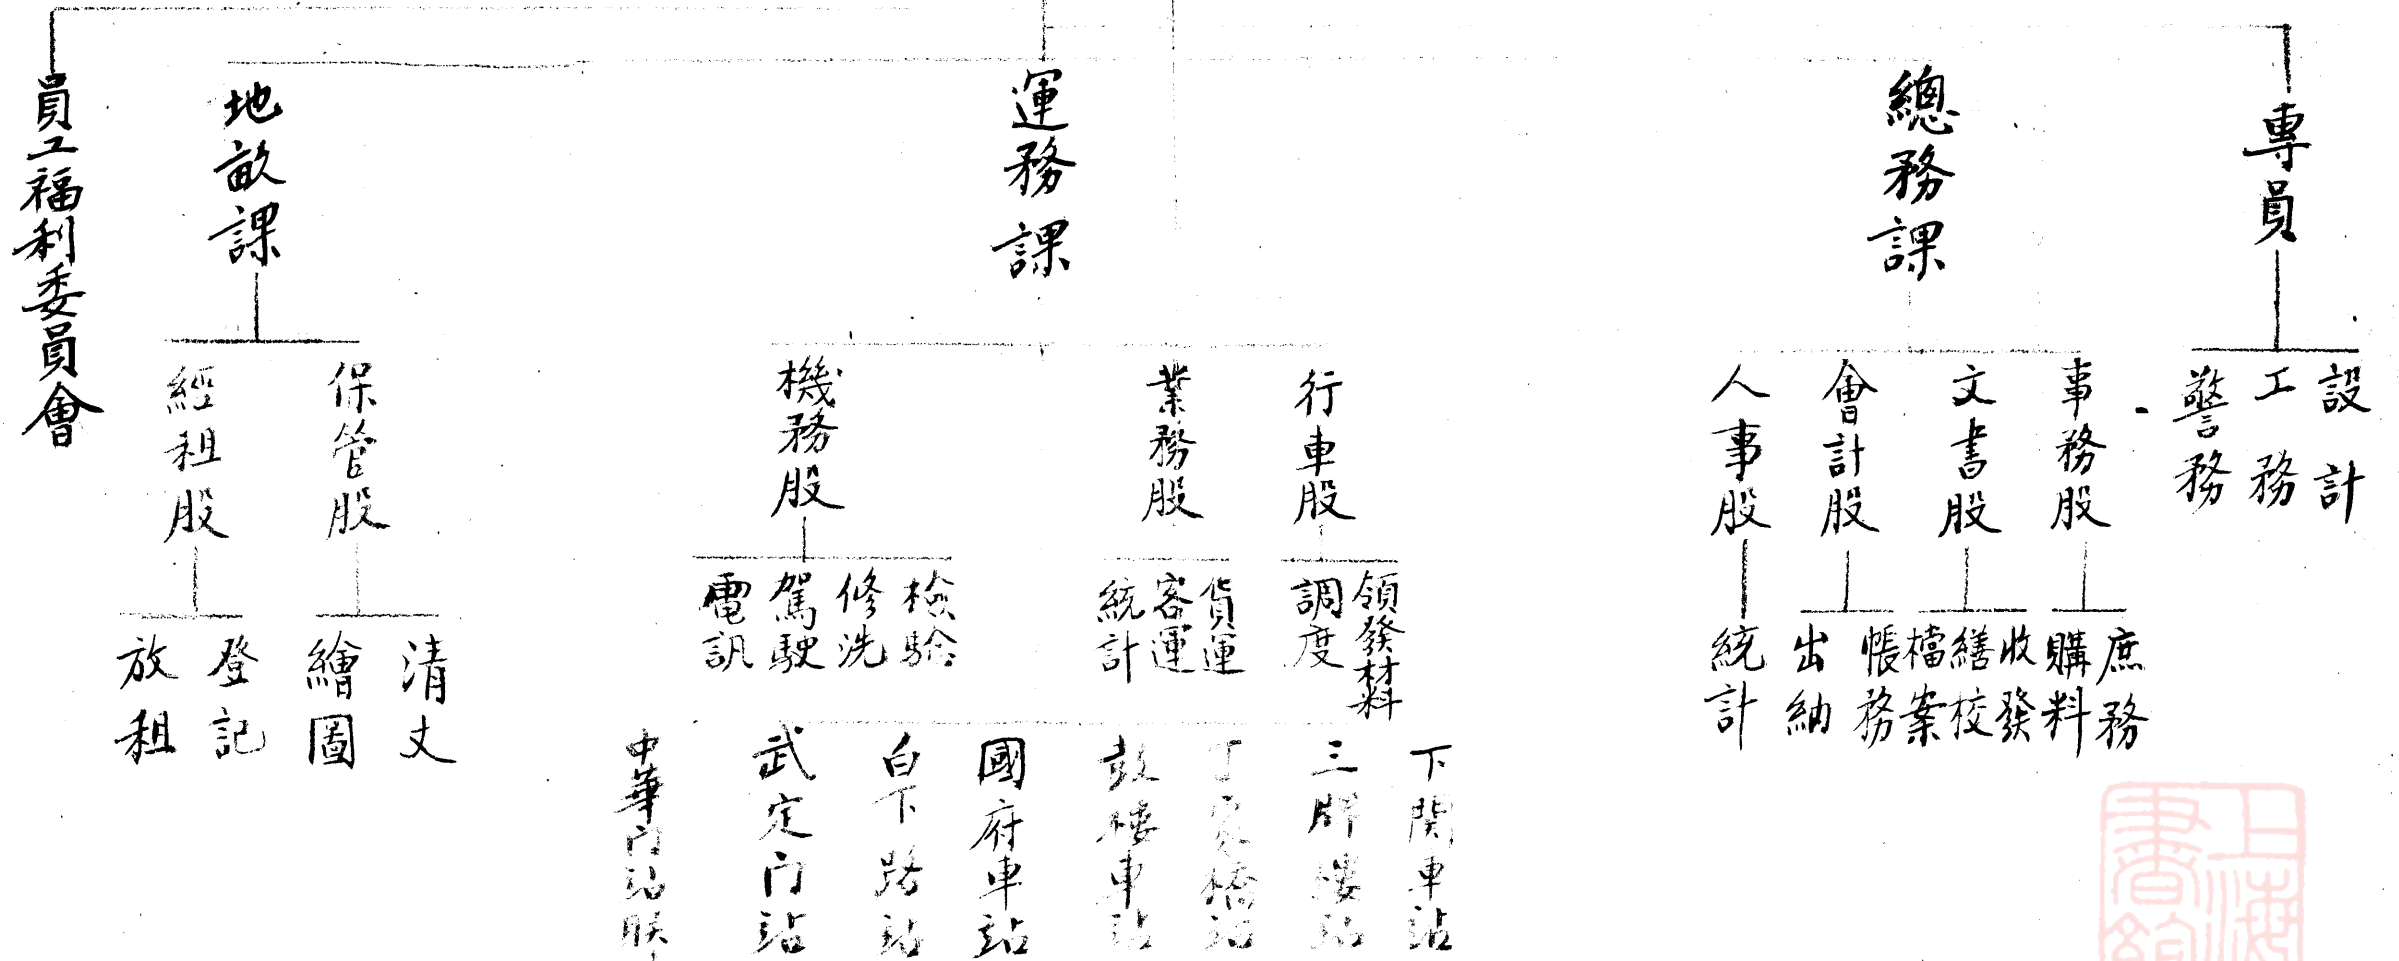 專員
設計
工務
警務
總務課
事務股
庶務
購料
文書股
收發
繕校
檔案
會計股
帳務
出納
人事股
統計
運務課
行車股
領發材料
調度
業務股
貨運
客運
統計
機務股
檢驗
修洗
駕駛
電訊
下關車站
三牌樓站
丁家橋站
鼓樓車站
國府車站
白下路站
武定門站
中華門站
地畝課
保管股
清丈
繪圖
經租股
登記
放租
員工福利委員會
上海
書館